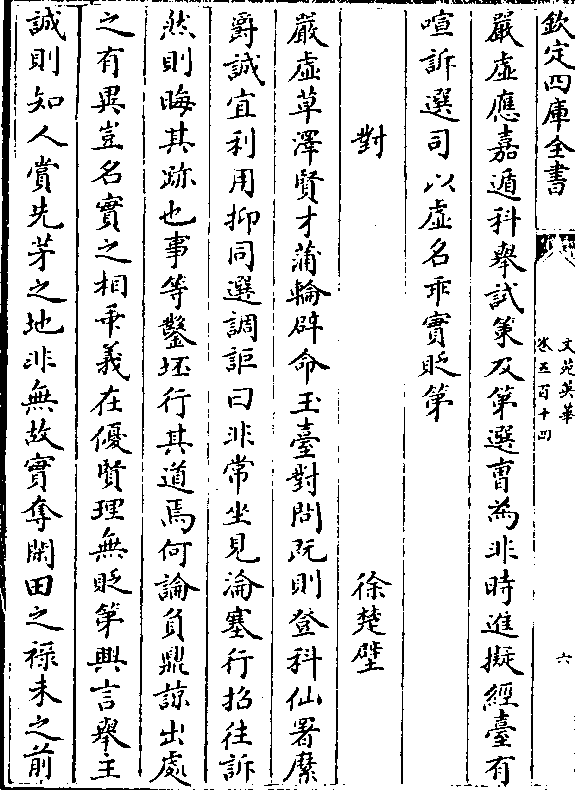 欽定四庫全書
文苑英華
卷五百十四
六
嚴虚應嘉遁科舉試策及第選曹為非時進擬經臺有
喧訴選司以虚名乖實貶第
對
徐楚璧
嚴虚草澤賢才蒲輪辟命玉臺對問既則登科仙署縻
爵誠宜利用抑同選調詎曰非常坐見淪塞行招往訴
然則晦其跡也事等鑿坯行其道焉何論負鼎諒出處
之有異豈名實之相乖義在優賢理無貶第興言舉主
誠則知人賞先茅之地非無故實奪閑田之禄未之前